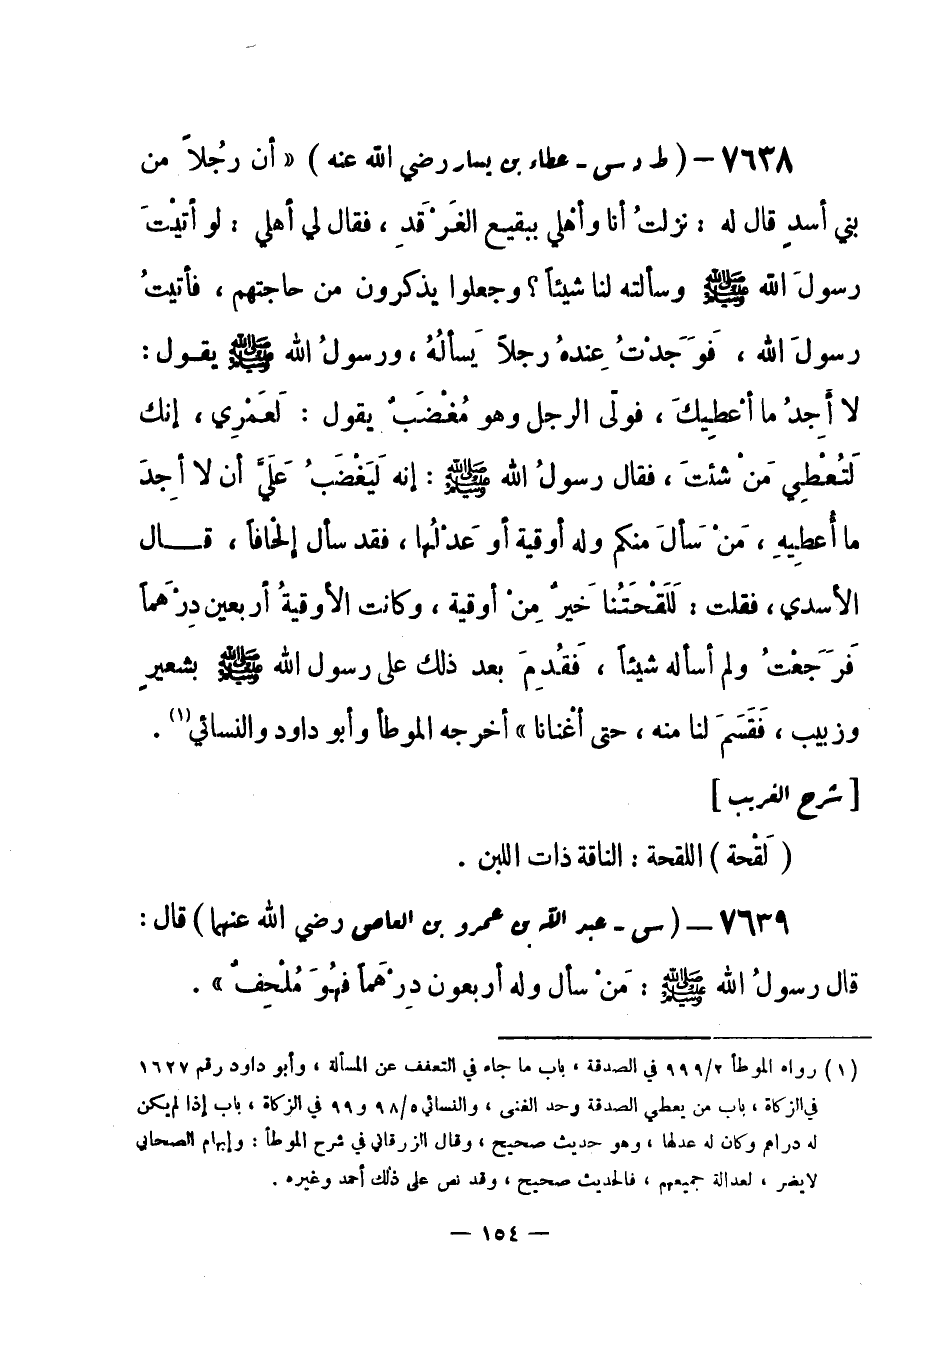 ٧٦٣٨ – ( ط د س - عطاء بن يسار رضي الله عنه ) « أن رجُلاً من
بني أسدٍ قال له : نزلتُ أنا وأهْلي ببقيع الغَرْقدِ ، فقال لي أهلي : لو أتيْتَ
رسولَ الله ﷺ وسألته لنا شيئاً ؟ وجعلوا يذكرون من حاجتهم ، فأتيتُ
رسولَ الله ، فوَجدْتُ عِندهُ رجلاً يَسألُهُ ، ورسولُ الله ﷺ يقول :
لا أَجِدُ ما أعْطِيكَ ، فولّى الرجل وهو مُغْضَبٌ يقول : لَعَمْرِي ، إنك
لَتُعْطِي مَنْ شئتَ ، فقال رسولُ الله ﷺ : إنه لَيَغْضَبُ عَلَيَّ أن لا أجِدَ
ما أُعطِيهِ ، مَنْ سَألَ منكم وله أوقية أو عَدْلُها ، فقد سأل إلْحَافاً ، قــال
الأسدي ، فقلت : لَلَقْحَتُنا خَيرٌ مِنْ أوقية ، وكانت الأوقيةُ أربعين دِرْهَماً
فَرَجَعْتُ ولم أسأله شيئاً ، فَقُدِمَ بعد ذلك على رسول الله ﷺ بشعيرٍ
وزبيب ، فَقَسَمَ لنا منه ، حتى أغْنانا » أخرجه الموطأ وأبو داود والنسائي(١) .
[ شرح الغريب ]
( لَقْحة ) اللقحة : الناقة ذات اللبن .
٧٦٣٩ – ( س - عبد الله بن عمرو بن العاص رضي الله عنهما ) قال :
قال رسولُ الله ﷺ : مَنْ سأل وله أربعون دِرْهَماً فهُوَ مُلْحِفٌ » .
(١) رواه الموطأ ٩٩٩/٢ في الصدقة ، باب ما جاء في التعفف عن المسألة ، وأبو داود رقم ١٦٢٧
في الزكاة ، باب من يعطي الصدقة وحد الغنى ، والنسائي ٩٨/٥ و ٩٩ في الزكاة ، باب إذا لم يكن
له دراهم وكان له عدلها ، وهو حديث صحيح ، وقال الزرقاني في شرح الموطأ : وإبهام الصحابي
لا يضر ، لعدالة جميعهم ، فالحديث صحيح ، وقد نص على ذلك أحمد وغيره .
– ١٥٤ –